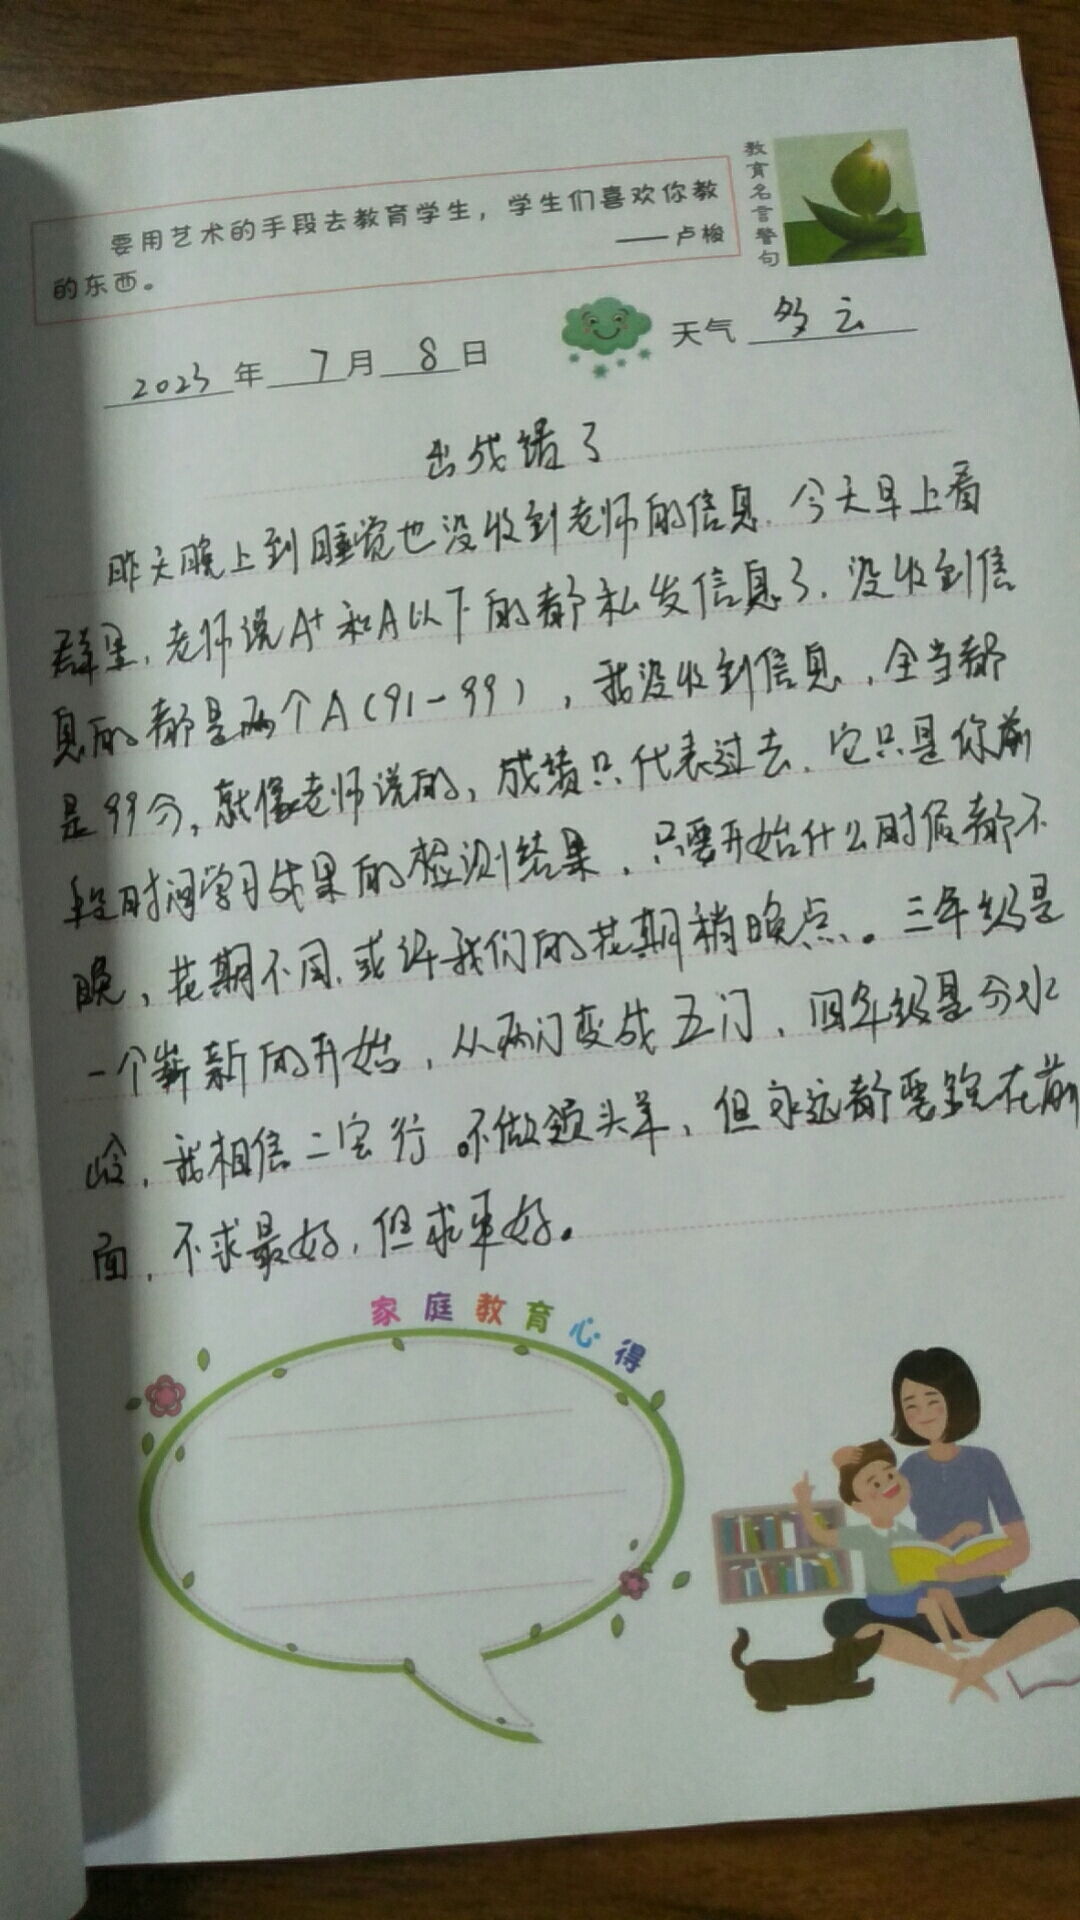 教育名言警句
要用艺术的手段去教育学生，学生们喜欢你教
的东西。
——卢梭
2023年7月8日
天气 多云
出成绩了
昨天晚上到睡觉也没收到老师的信息，今天早上看
群里，老师说A+和A以下的都私发信息了，没收到信
息的都是两个A(91-99)，我没收到信息，全当都
是99分，就像老师说的，成绩只代表过去，它只是你前
段时间学习成果的检测结果，只要开始什么时候都不
晚，花期不同，或许我们的花期稍晚点。三年级是
一个崭新的开始，从两门变成五门，四年级是分水
岭，我相信二宝行。不做领头羊，但永远都要跑在前
面，不求最好，但求更好。
家庭教育心得